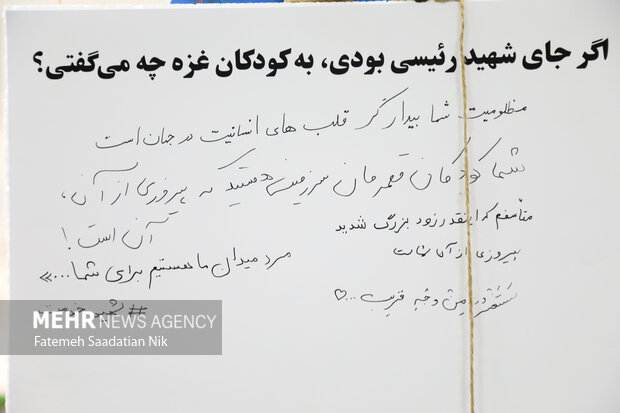 اگر جای شهید رئیسی بودی، به کودکان غزه چه می‌گفتی؟
مظلومیت شما بیدارگر قلب های انسانیت در جهان است
شما کودکان قهرمان سرزمینی هستید که پیروزی از آن،
آن است!
متأسفم که اینقدر زود بزرگ شدید
پیروزی از آن شماست
مرد میدان ما هستیم برای شما...»
و فتح قریب ...♡
#شهید
MEHR NEWS AGENCY
Fatemeh Saadatian Nik